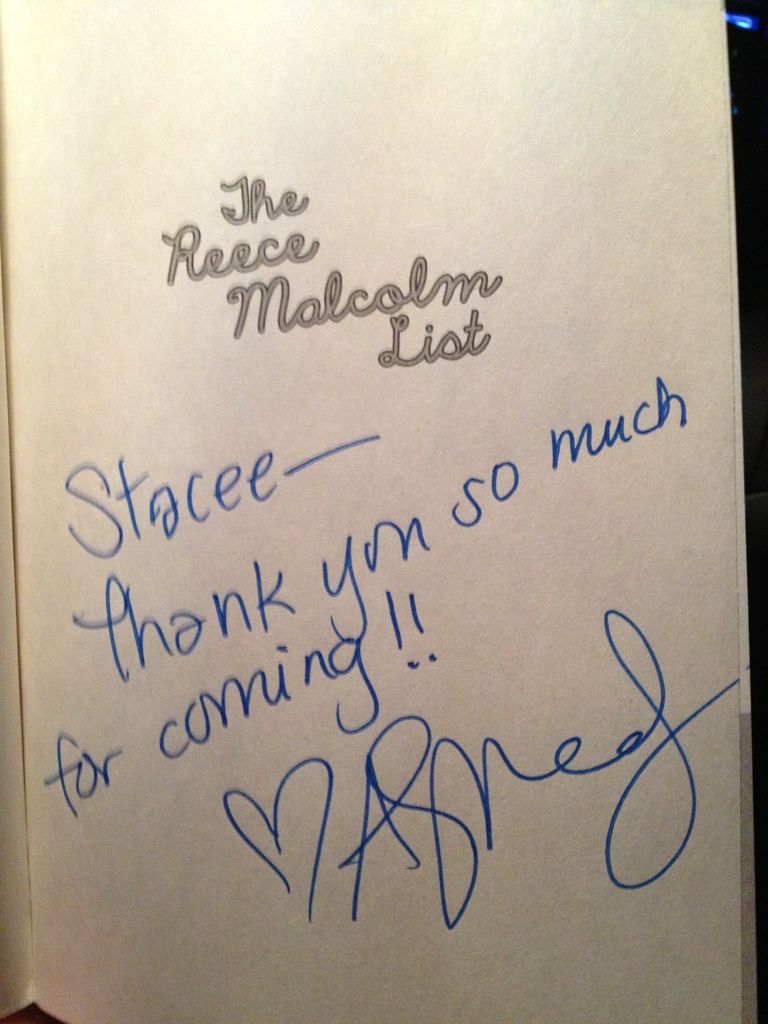 The
Reece
Malcolm
List
Stacee—
thank you so much
for coming!!
♡